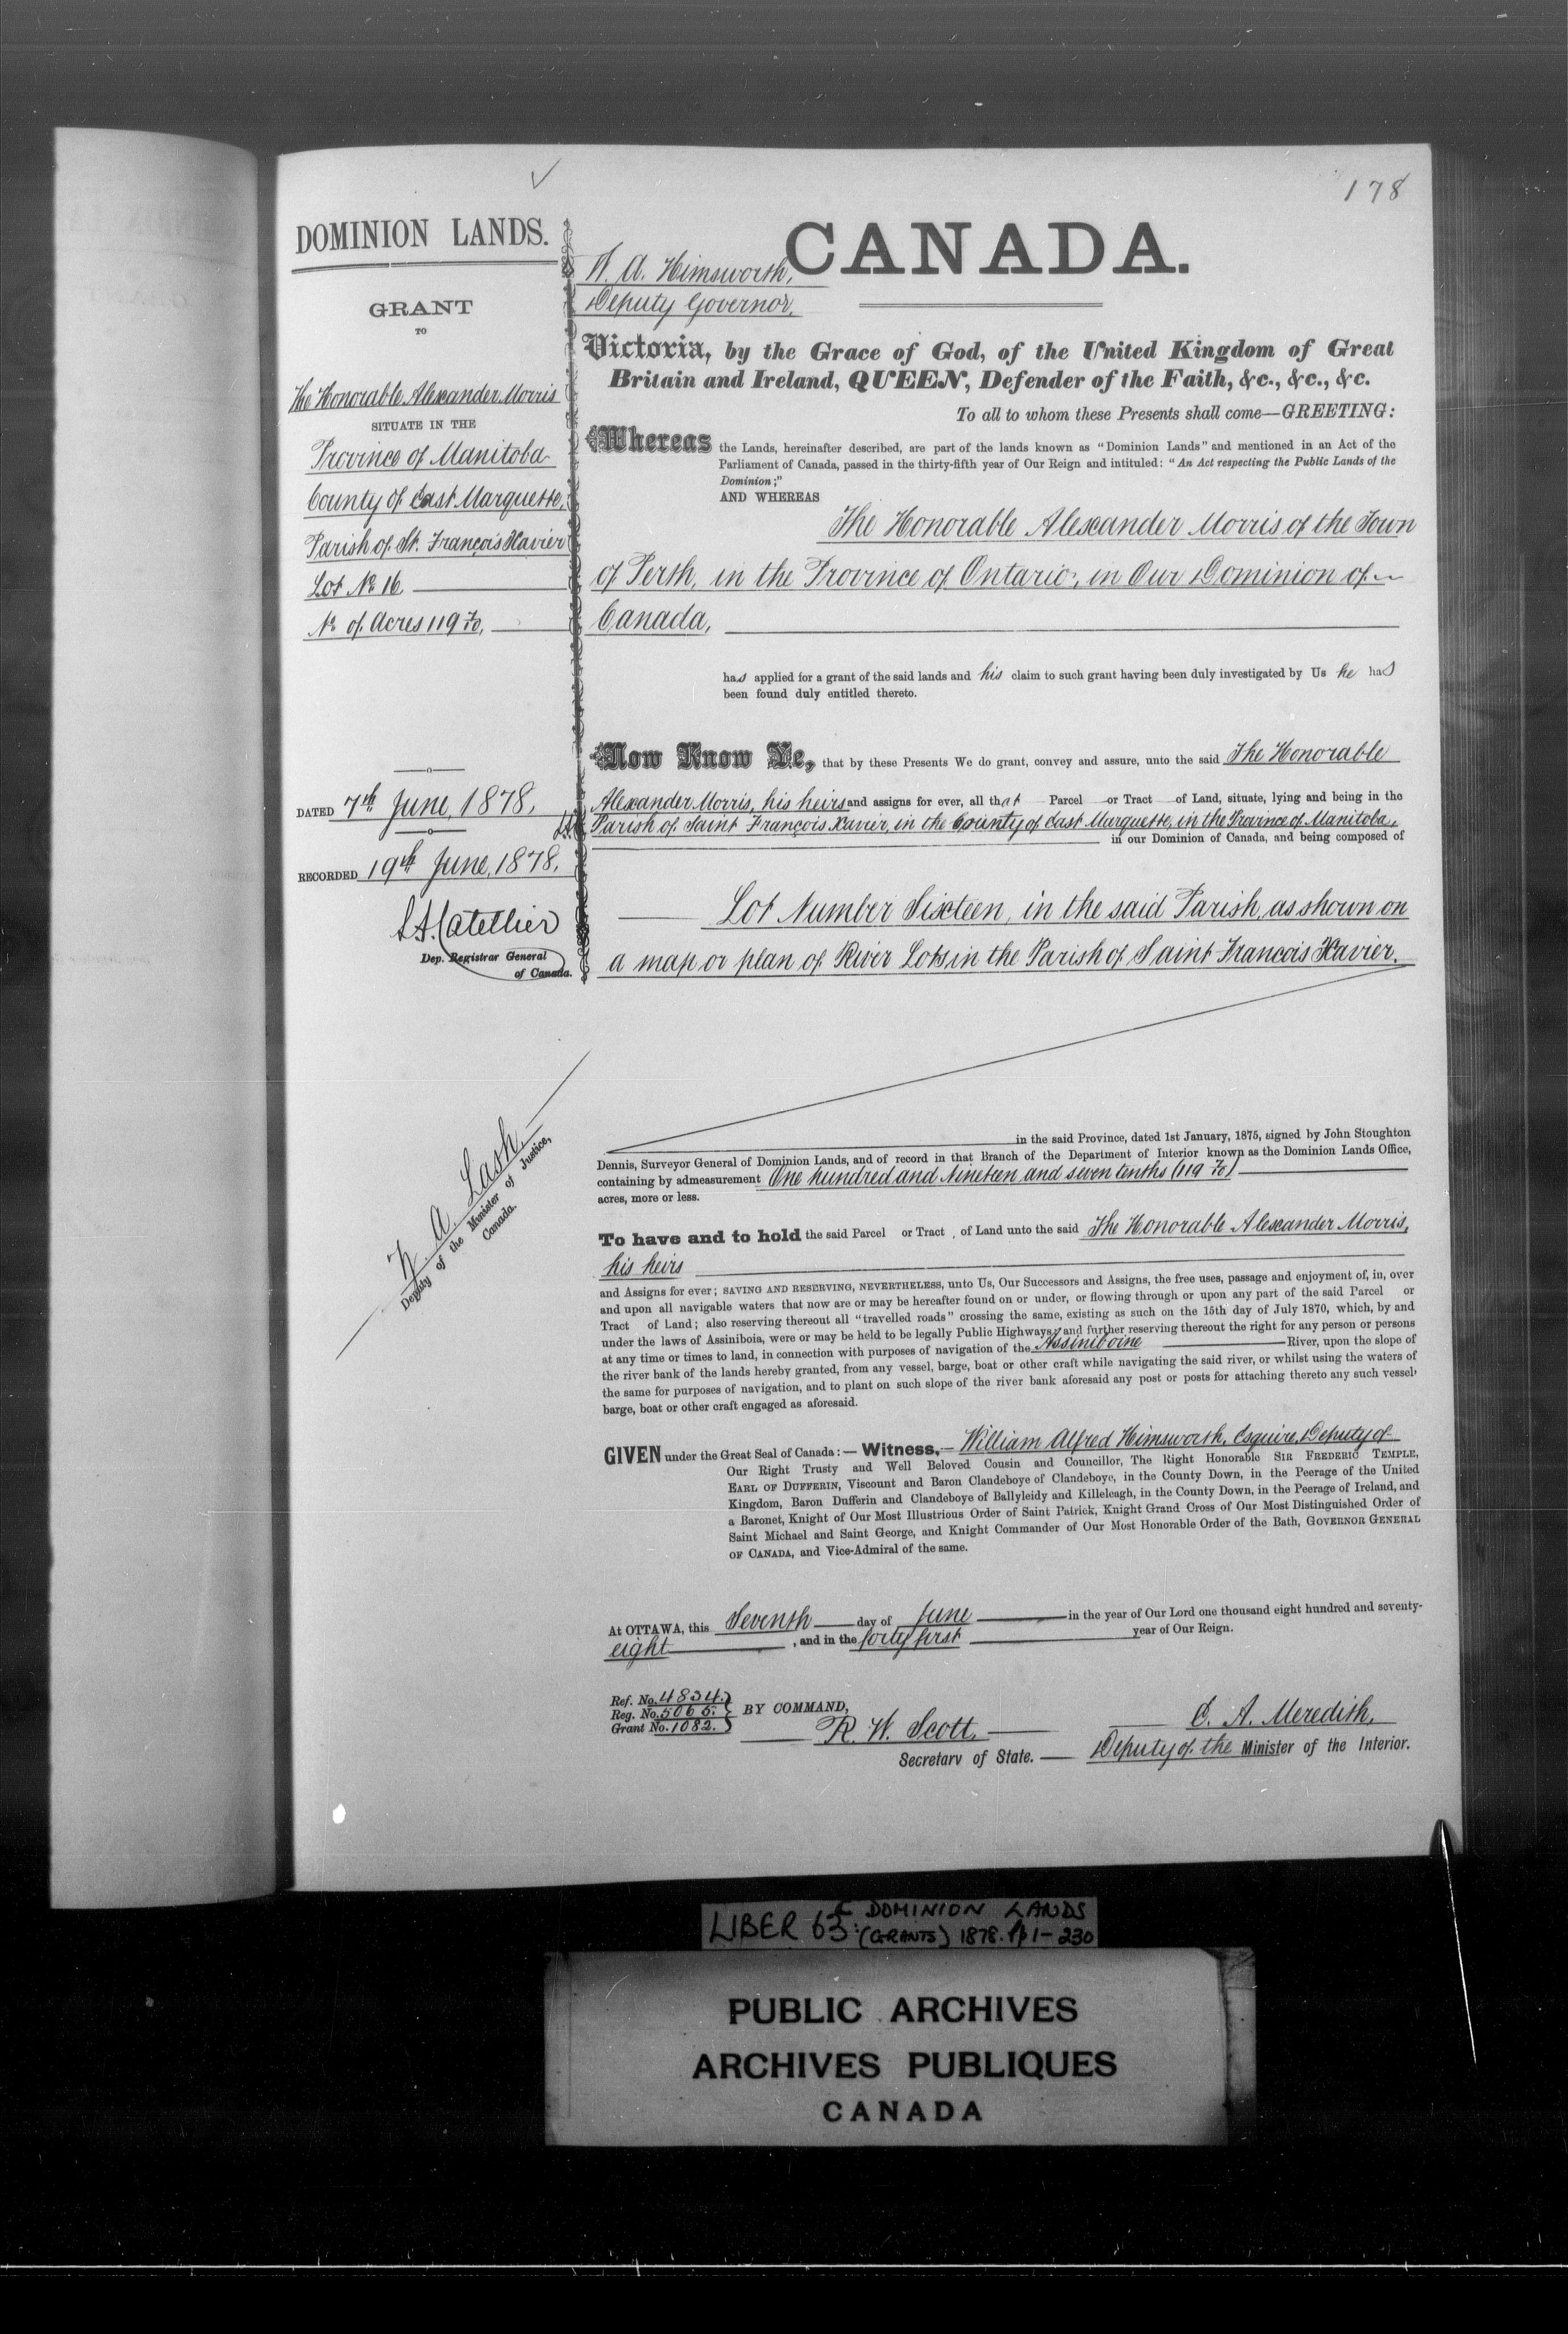 178
DOMINION LANDS.
GRANT
TO
The Honorable Alexander Morris
SITUATE IN THE
Province of Manitoba
County of East Marquette,
Parish of St. François Xavier
Lot No 16.
No of Acres 119 7/10,
DATED 7th June, 1878,
RECORDED 19th June, 1878,
L. A. Catellier
Dep. Registrar General
of Canada.
Z. A. Lash,
Deputy of the Minister of Justice,
Canada.
CANADA.
W. A. Himsworth,
Deputy Governor.
Victoria, by the Grace of God, of the United Kingdom of Great
Britain and Ireland, QUEEN, Defender of the Faith, &c., &c., &c.
To all to whom these Presents shall come—GREETING:
Whereas the Lands, hereinafter described, are part of the lands known as "Dominion Lands" and mentioned in an Act of the
Parliament of Canada, passed in the thirty-fifth year of Our Reign and intituled: "An Act respecting the Public Lands of the
Dominion;"
AND WHEREAS
The Honorable Alexander Morris of the Town
of Perth, in the Province of Ontario, in Our Dominion of
Canada,
has applied for a grant of the said lands and his claim to such grant having been duly investigated by Us he has
been found duly entitled thereto.
Now Know Ye, that by these Presents We do grant, convey and assure, unto the said The Honorable
Alexander Morris, his heirs and assigns for ever, all that Parcel or Tract of Land, situate, lying and being in the
Parish of Saint François Xavier, in the County of East Marquette, in the Province of Manitoba,
in our Dominion of Canada, and being composed of
Lot Number Sixteen, in the said Parish, as shown on
a map or plan of River Lots in the Parish of Saint François Xavier.
in the said Province, dated 1st January, 1875, signed by John Stoughton
Dennis, Surveyor General of Dominion Lands, and of record in that Branch of the Department of Interior known as the Dominion Lands Office,
containing by admeasurement One hundred and Nineteen and seven tenths (119 7/10)
acres, more or less.
To have and to hold the said Parcel or Tract , of Land unto the said The Honorable Alexander Morris,
his heirs
and Assigns for ever; SAVING AND RESERVING, NEVERTHELESS, unto Us, Our Successors and Assigns, the free uses, passage and enjoyment of, in, over
and upon all navigable waters that now are or may be hereafter found on or under, or flowing through or upon any part of the said Parcel or
Tract of Land; also reserving thereout all "travelled roads" crossing the same, existing as such on the 15th day of July 1870, which, by and
under the laws of Assiniboia, were or may be held to be legally Public Highways; and further reserving thereout the right for any person or persons
at any time or times to land, in connection with purposes of navigation of the Assiniboine River, upon the slope of
the river bank of the lands hereby granted, from any vessel, barge, boat or other craft while navigating the said river, or whilst using the waters of
the same for purposes of navigation, and to plant on such slope of the river bank aforesaid any post or posts for attaching thereto any such vessel,
barge, boat or other craft engaged as aforesaid.
GIVEN under the Great Seal of Canada:— Witness,— William Alfred Himsworth, Esquire, Deputy of
Our Right Trusty and Well Beloved Cousin and Councillor, The Right Honorable SIR FREDERIC TEMPLE,
EARL OF DUFFERIN, Viscount and Baron Clandeboye of Clandeboye, in the County Down, in the Peerage of the United
Kingdom, Baron Dufferin and Clandeboye of Ballyleidy and Killeleagh, in the County Down, in the Peerage of Ireland, and
a Baronet, Knight of Our Most Illustrious Order of Saint Patrick, Knight Grand Cross of Our Most Distinguished Order of
Saint Michael and Saint George, and Knight Commander of Our Most Honorable Order of the Bath, GOVERNOR GENERAL
OF CANADA, and Vice-Admiral of the same.
At OTTAWA, this Seventh day of June in the year of Our Lord one thousand eight hundred and seventy-
eight , and in the forty first year of Our Reign.
Ref. No. 4834.
Reg. No. 5065.
Grant No. 1082.
BY COMMAND,
R. W. Scott,
Secretary of State.
E. A. Meredith,
Deputy of the Minister of the Interior.
LIBER 63: DOMINION LANDS
(GRANTS) 1878. pp 1-230
PUBLIC ARCHIVES
ARCHIVES PUBLIQUES
CANADA